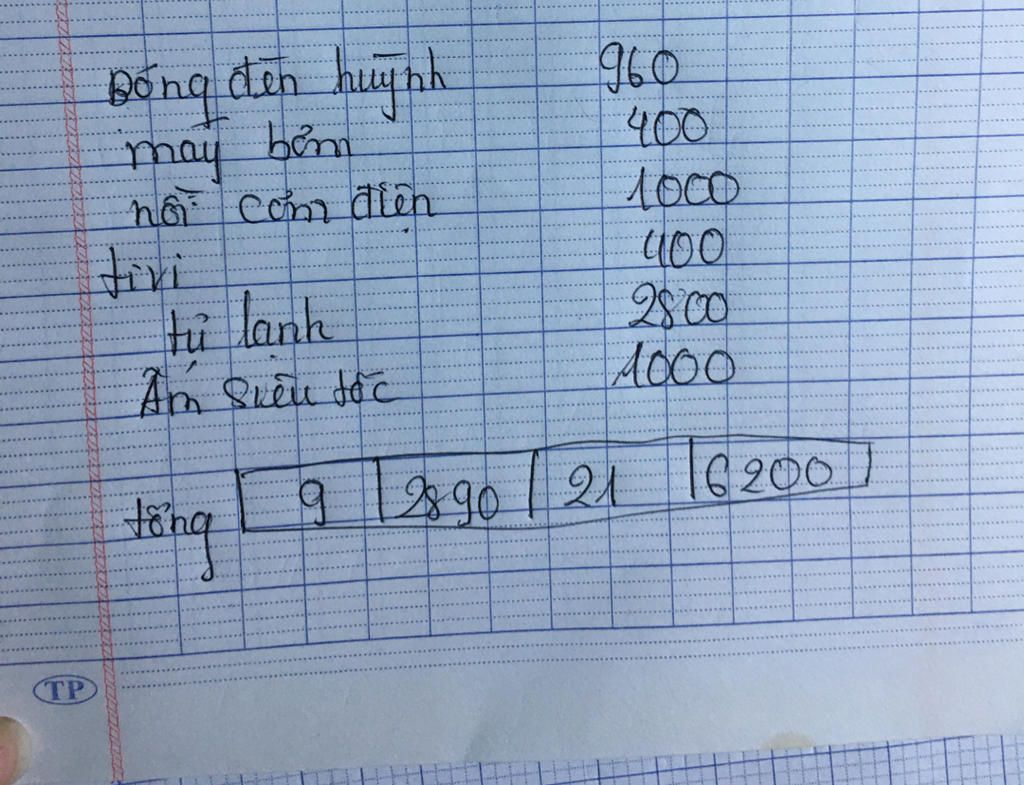 Bóng đèn huỳnh 960
máy bơm 400
nồi cơm điện 1000
tivi 400
tủ lạnh 2800
Ấm siêu tốc 1000
tổng 9 2890 21 6200
TP